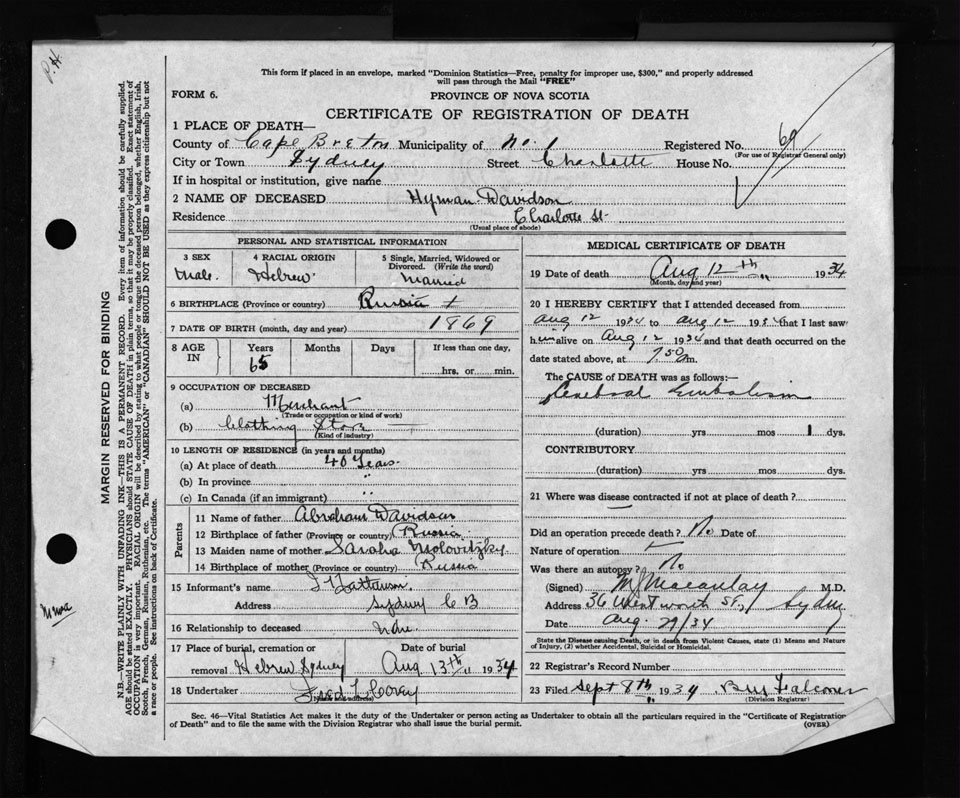 P.H.
This form if placed in an envelope, marked "Dominion Statistics—Free, penalty for improper use, $300," and properly addressed
will pass through the Mail "FREE"
FORM 6.
PROVINCE OF NOVA SCOTIA
CERTIFICATE OF REGISTRATION OF DEATH
1 PLACE OF DEATH—
County of Cape Breton Municipality of No. 1 Registered No. 69
(For use of Registrar General only)
City or Town Sydney Street Charlotte House No.
If in hospital or institution, give name
2 NAME OF DECEASED Hyman Davidson
Residence Charlotte St
(Usual place of abode)
PERSONAL AND STATISTICAL INFORMATION
3 SEX
Male
4 RACIAL ORIGIN
Hebrew
5 Single, Married, Widowed or
Divorced. (Write the word)
Married
6 BIRTHPLACE (Province or country) Russia +
7 DATE OF BIRTH (month, day and year) 1869
8 AGE IN
Years Months Days If less than one day,
65 hrs. or min.
9 OCCUPATION OF DECEASED
(a) Merchant
(Trade or occupation or kind of work)
(b) Clothing Store
(Kind of industry)
10 LENGTH OF RESIDENCE (in years and months)
(a) At place of death 40 Years.
(b) In province "
(c) In Canada (if an immigrant) "
Parents
11 Name of father Abraham Davidson
12 Birthplace of father (Province or country) Russia
13 Maiden name of mother Saraha
14 Birthplace of mother (Province or country) Russia
15 Informant's name
Address Sydney C B
16 Relationship to deceased None
17 Place of burial, cremation or Date of burial
removal Hebrew Sydney Aug 13th 1934
18 Undertaker Fred
(Name and address)
MEDICAL CERTIFICATE OF DEATH
19 Date of death Aug 12th 1934
(Month, day and year)
20 I HEREBY CERTIFY that I attended deceased from
Aug 12 1934 to Aug 12 1934 that I last saw
him alive on Aug 12 1934 and that death occurred on the
date stated above, at 7.50 m.
The CAUSE of DEATH was as follows:
Cerebral Embolism
(duration) yrs mos 1 dys.
CONTRIBUTORY
(duration) yrs mos dys.
21 Where was disease contracted if not at place of death?
Did an operation precede death? No Date of
Nature of operation
Was there an autopsy? No
(Signed) M J Macaulay M.D.
Address 36 Wentworth St, Sydney
Date Aug. 29/34
State the Disease causing Death, or in death from Violent Causes, state (1) Means and Nature
of Injury, (2) whether Accidental, Suicidal or Homicidal.
22 Registrar's Record Number
23 Filed Sept 8th 1934 Falconer
(Division Registrar)
Sec. 46—Vital Statistics Act makes it the duty of the Undertaker or person acting as Undertaker to obtain all the particulars required in the "Certificate of Registration
of Death" and to file the same with the Division Registrar who shall issue the burial permit. (OVER)
MARGIN RESERVED FOR BINDING
N.B.—WRITE PLAINLY WITH UNFADING INK—THIS IS A PERMANENT RECORD. Every item of information should be carefully supplied.
AGE should be stated EXACTLY. PHYSICIANS should STATE CAUSE OF DEATH in plain terms, so that it may be properly classified. Exact statement of
OCCUPATION is very important. RACIAL ORIGIN will be described by stating to what people or tongue the deceased person belonged, whether English, Irish,
Scotch, French, German, Russian, Ruthenian, etc. The terms "AMERICAN" or "CANADIAN" SHOULD NOT BE USED as they express citizenship but not
a race or people. See instructions on back of Certificate.